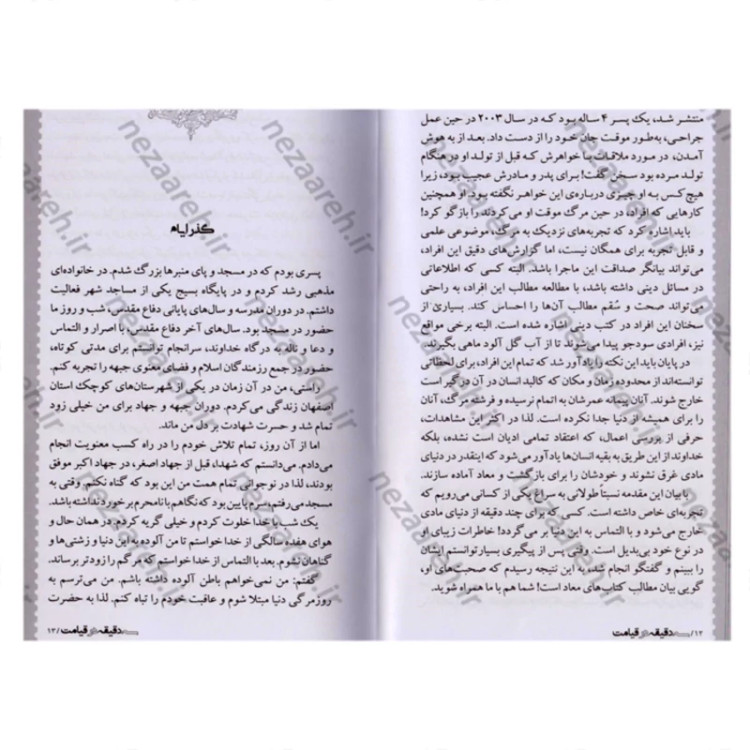 منتشر شد، یک پسر ۴ ساله بود که در سال ۲۰۰۳ در حین عمل
جراحی، به‌طور موقت جان خود را از دست داد. بعد از به هوش
آمدن، در مورد ملاقات با خواهرش که قبل از تولد او در هنگام
تولد مرده بود سخن گفت! برای پدر و مادرش عجیب بود، زیرا
هیچ کس به او چیزی درباره‌ی این خواهر نگفته بود. او همچنین
کارهایی که افراد، در حین مرگ موقت او می‌کردند را بازگو کرد!
باید اشاره کرد که تجربه‌های نزدیک به مرگ، موضوعی علمی
و قابل تجربه برای همگان نیست، اما گزارش‌های دقیق این افراد،
می‌تواند بیانگر صداقت این ماجرا باشد. البته کسی که اطلاعاتی
در مسائل دینی داشته باشد، با مطالعه مطالب این افراد، به راحتی
می‌تواند صحت و سُقم مطالب آن‌ها را احساس کند. بسیاری از
سخنان این افراد در کتب دینی اشاره شده است. البته برخی مواقع
نیز، افرادی سودجو پیدا می‌شوند تا از آب گل آلود ماهی بگیرند.
در پایان باید این نکته را یادآور شد که تمام این افراد، برای لحظاتی
توانسته‌اند از محدوده زمان و مکان که کالبد انسان در آن درگیر است
خارج شوند. آنان پیمانه عمرشان به اتمام نرسیده و فرشته مرگ، آنان
را برای همیشه از دنیا جدا نکرده است. لذا در اکثر این مشاهدات،
حرفی از بررسی اعمال، که اعتقاد تمامی ادیان است نشده، بلکه
خداوند از این طریق به بقیه انسان‌ها یادآور می‌شود که اینقدر در دنیای
مادی غرق نشوند و خودشان را برای بازگشت و معاد آماده سازند.
با بیان این مقدمه نسبتا طولانی به سراغ یکی از کسانی می‌رویم که
تجربه‌ای خاص داشته است. کسی که برای چند دقیقه از دنیای مادی
خارج می‌شود و با التماس به این دنیا بر می‌گردد! خاطرات زیبای او
در نوع خود بی‌بدیل است. وقتی پس از پیگیری بسیار توانستم ایشان
را ببینم و گفتگو انجام شد، به این نتیجه رسیدم که صحبت‌های او،
گویی بیان مطالب کتاب‌های معاد است! شما هم با ما همراه شوید.
۱۲/ سه دقیقه در قیامت
گذر ایام
پسری بودم که در مسجد و پای منبرها بزرگ شدم. در خانواده‌ای
مذهبی رشد کردم و در پایگاه بسیج یکی از مساجد شهر فعالیت
داشتم. در دوران مدرسه و سال‌های پایانی دفاع مقدس، شب و روز ما
حضور در مسجد بود. سال‌های آخر دفاع مقدس، با اصرار و التماس
و دعا و ناله به درگاه خداوند، سرانجام توانستم برای مدتی کوتاه،
حضور در جمع رزمندگان اسلام و فضای معنوی جبهه را تجربه کنم.
راستی، من در آن زمان در یکی از شهرستان‌های کوچک استان
اصفهان زندگی می‌کردم. دوران جبهه و جهاد برای من خیلی زود
تمام شد و حسرت شهادت بر دل من ماند.
اما از آن روز، تمام تلاش خودم را در راه کسب معنویت انجام
می‌دادم. می‌دانستم که شهدا، قبل از جهاد اصغر، در جهاد اکبر موفق
بودند، لذا در نوجوانی تمام همت من این بود که گناه نکنم. وقتی به
مسجد می‌رفتم، سرم پایین بود که نگاهم با نامحرم برخورد نداشته باشد.
یک شب با خدا خلوت کردم و خیلی گریه کردم. در همان حال و
هوای هفده سالگی از خدا خواستم تا من آلوده به این دنیا و زشتی‌ها و
گناهان نشوم. بعد با التماس از خدا خواستم که مرگم را زودتر برساند.
گفتم: من نمی‌خواهم باطن آلوده داشته باشم. من می‌ترسم به
روزمرگی دنیا مبتلا شوم و عاقبت خودم را تباه کنم. لذا به حضرت
سه دقیقه در قیامت /۱۳
nezaareh.ir
nezaareh.ir
nezaareh.ir
nezaareh.ir
nezaareh.ir
nezaareh.ir